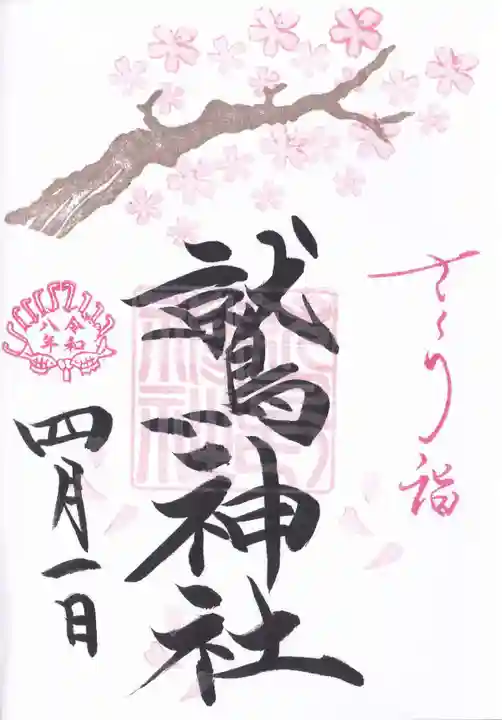 さくら詣
鷲神社
令和
八年
四月一日